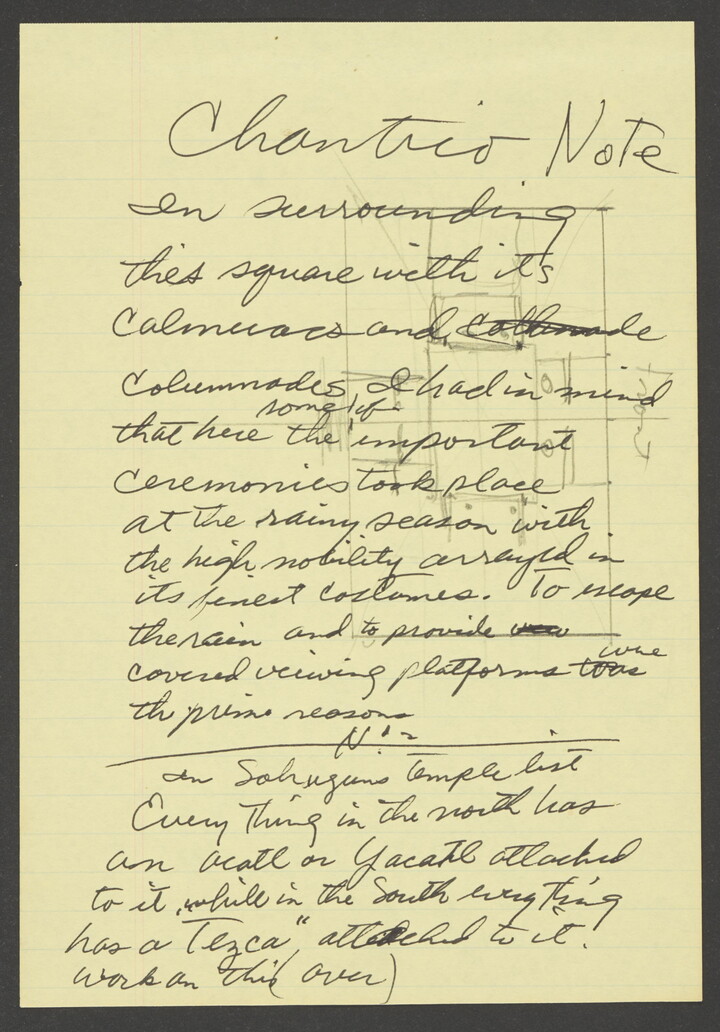 Chantico Note
In surrounding
this square with it's
Calmecacs and collonade
Columnades, I had in mind
some of
that here the important
ceremonies took place
at the rainy season with
the high nobility arrayed in
its finest costumes. To escape
the rain and to provide
were
covered viewing platforms was
th prime reasons
in Sahagun's temple list
Every Thing in the north has
an acatl or Yacatl attached
to it, while in the South everything
has a "Tezca" attached to it.
work on this (over)